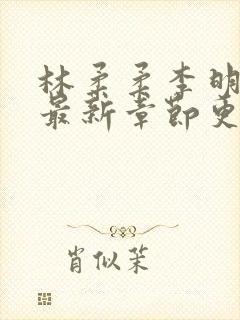 林柔柔李明
最新章节更
肖似茉